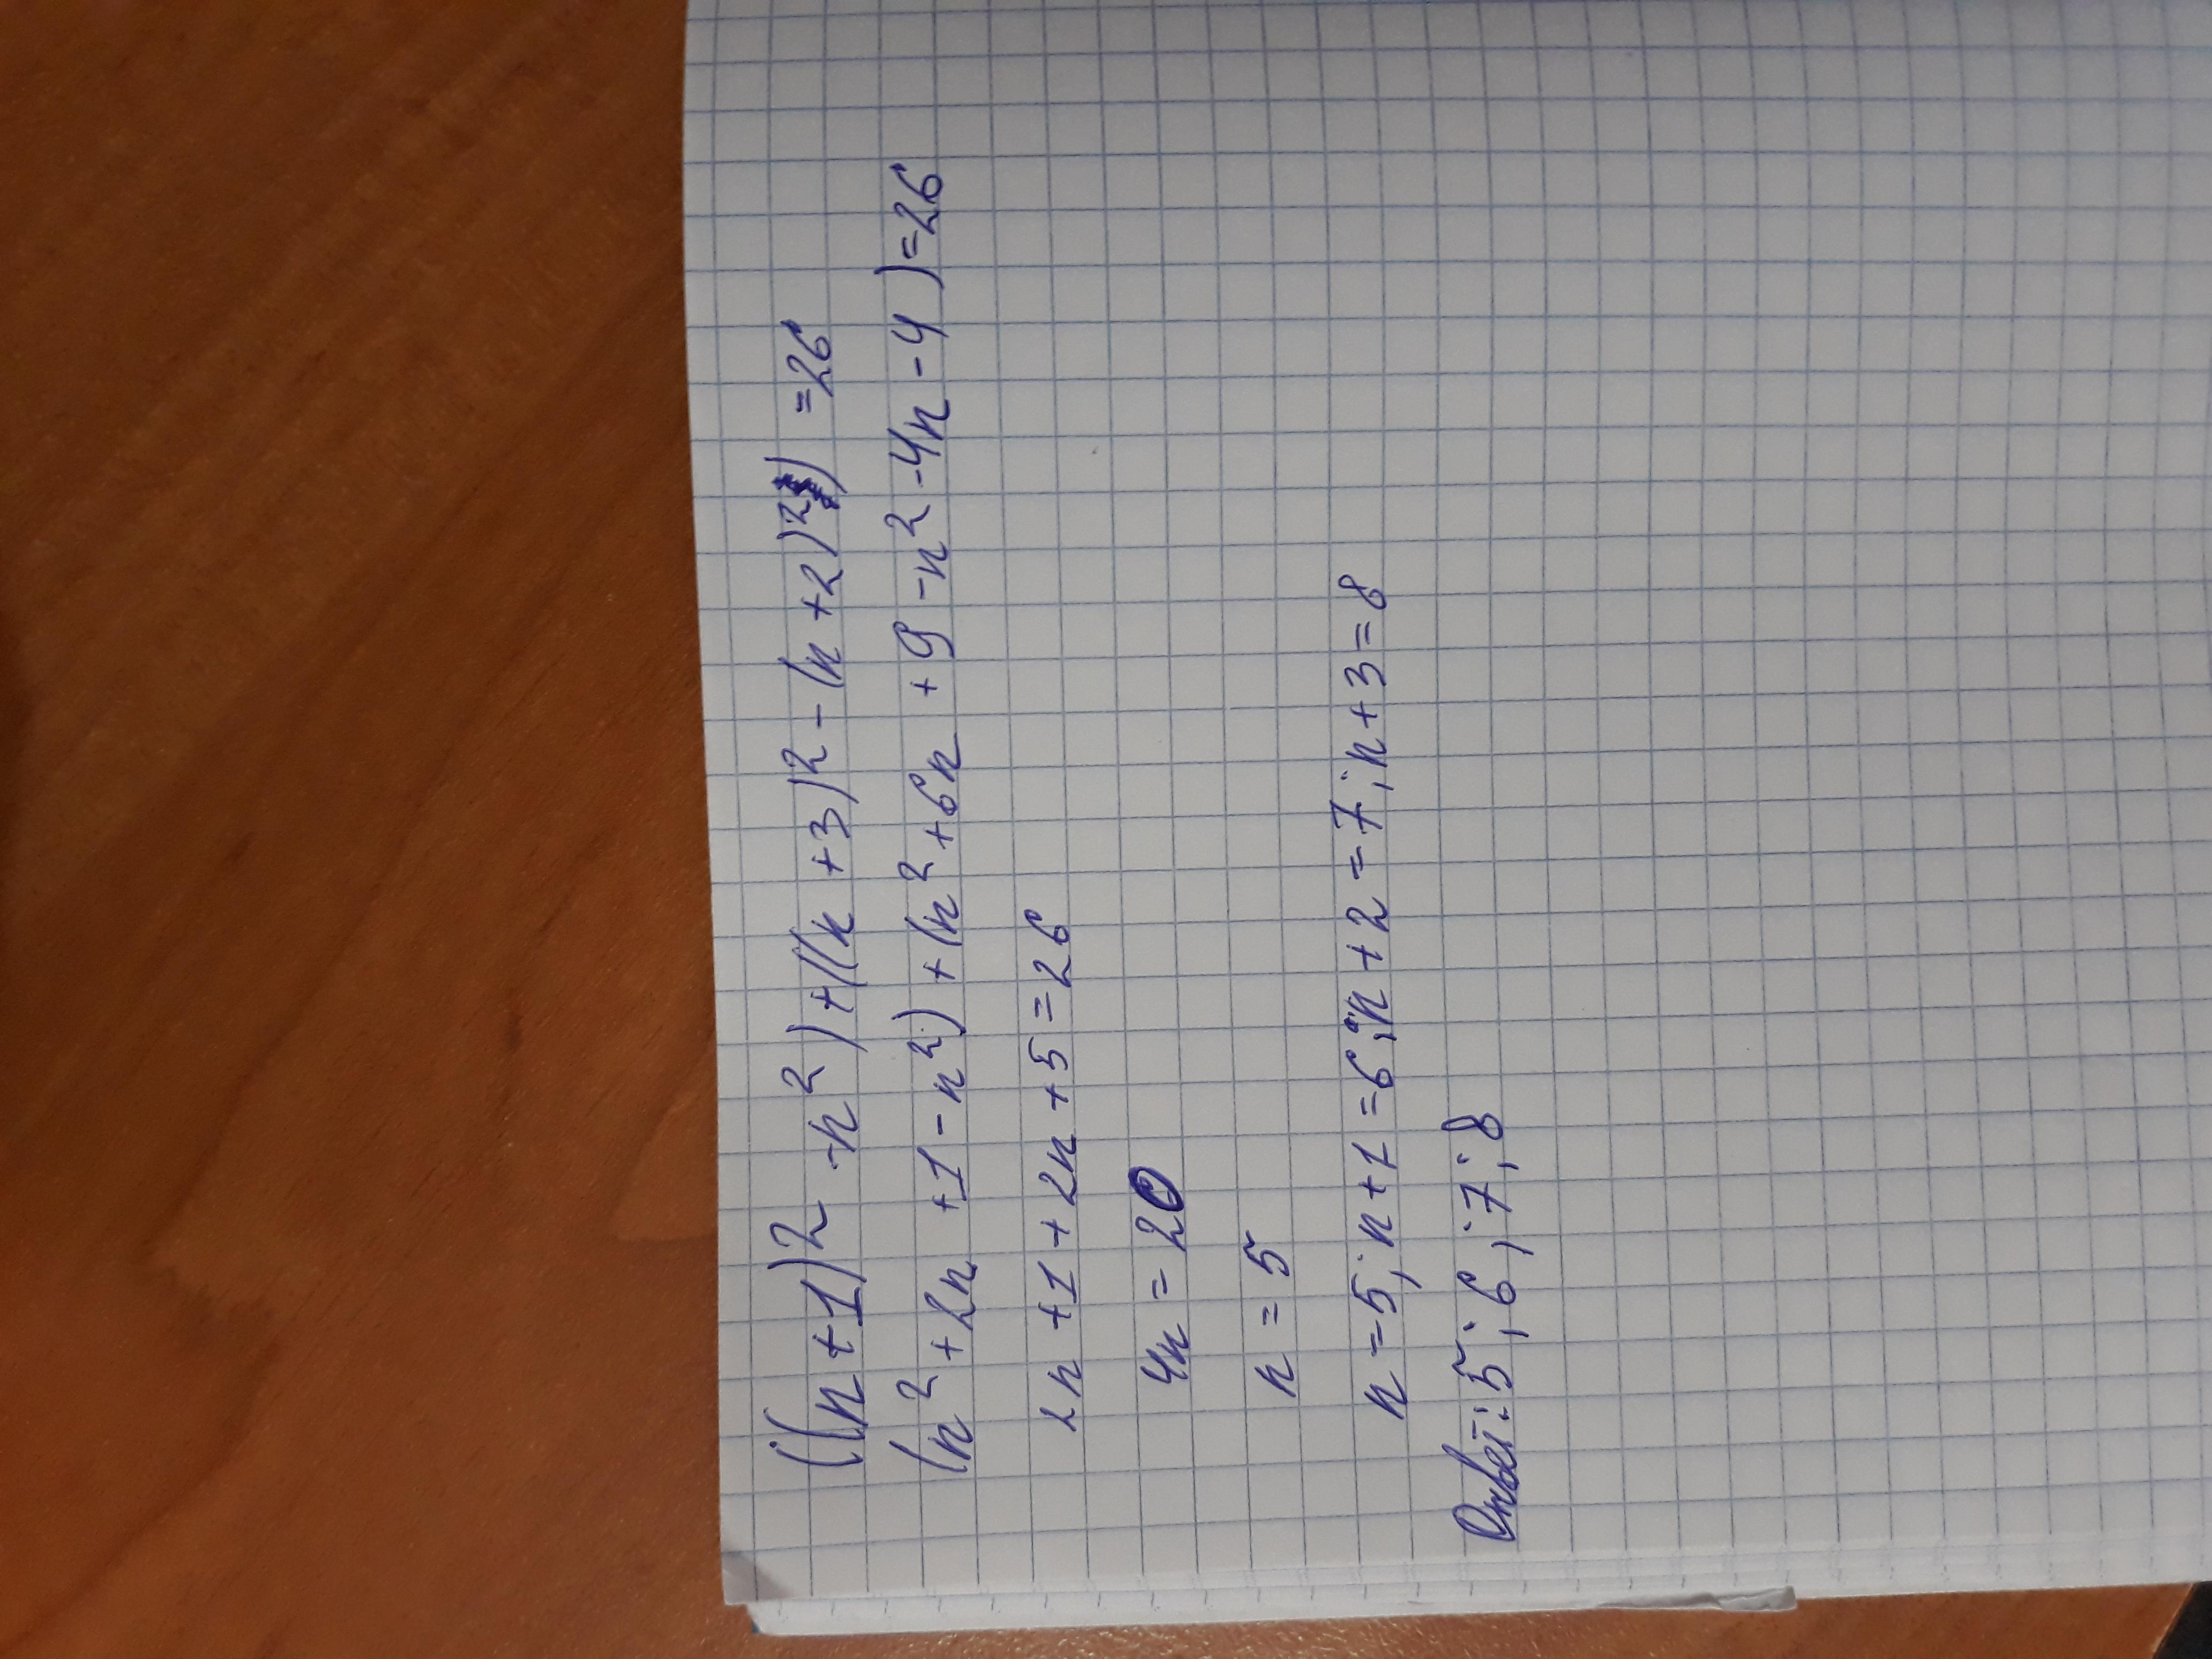 ((n+1)2 -n²)+((n+3)2-(n+2)²)=26
(n²+2n+1-n²)+(n²+6n+9-n2-4n-4)=26
2n+1+2n+5=26
4n=20
n=5
n=5; n+1=6; n+2=7; n+3=8
Ответ: 5; 6; 7; 8